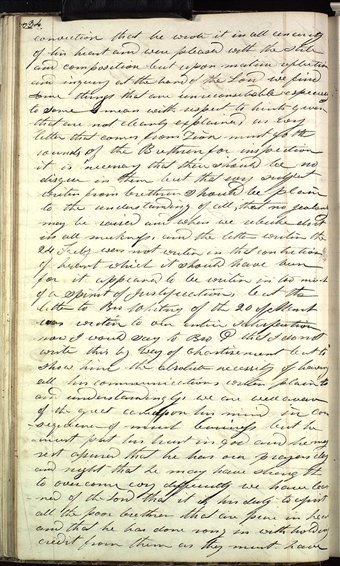 34
conviction that he wrote it in all sincerity
of his heart and were pleased with the stile
and composition but upon mature reflection
and inquiry at the hand of the Lord we find
some things that are unreconcilable especially
to some I mean with respect to hints given
that are not clearly explained as every
letter that comes from Zion must go the
rounds of the Brethren for inspection
it is necessary that their should be no
disguise in them but that every subject
writen from brethren should be plain
to the understanding of all that no jealousy
may be raised and when we rebuke do it
in all meekness and the letter writen the
24 Feb was not writen in that contrition
of heart which it should have been
for it appeared to be writen in too much
of a spirit of justification but the
letter to Bro Whitney of the 20 of March
was writen to our entire satisfaction
now I would say to Bro P that I do not
write this by way of chastisement but to
show him the absolute necessity of having
all his communications writen plain to
and understandingly we are well aware
of the great care upon his mind in con
sequence of much business but he
must put his trust in god and he may
rest assured that he has our prayers day
and night that he may have strength
to overcome every difficulty we have lear
ned of the Lord that it is his duty to assist
all the poor brethren that are pure in heart
and that he has done rong in withholding
credit from them as they must have